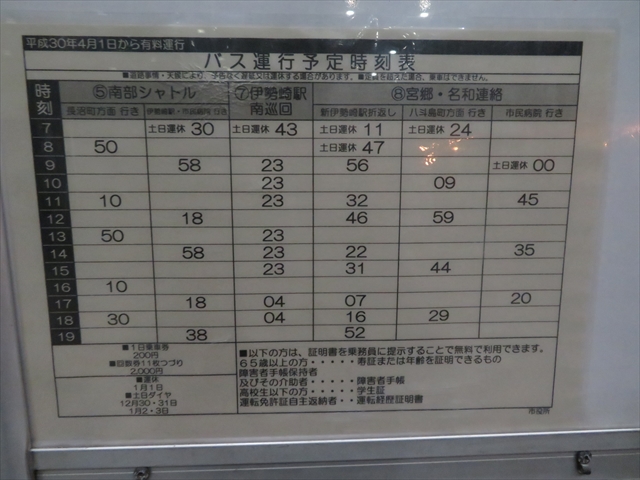 平成30年4月1日から有料運行
バス運行予定時刻表
■道路事情・天候により、予告なく遅延又は運休する場合があります。■定員を超えた場合、乗車はできません。
時刻 ⑤南部シャトル ⑦伊勢崎駅南巡回 ⑧宮郷・名和連絡
長沼町方面 行き 伊勢崎駅・市民病院 行き 新伊勢崎駅折返し 八斗島町方面 行き 市民病院 行き
7 土日運休 30 土日運休 43 土日運休 11 土日運休 24
8 50 土日運休 47
9 58 23 56 土日運休 00
10 23 09
11 10 23 32 45
12 18 46 59
13 50 23
14 58 23 22 35
15 23 31 44
16 10
17 18 04 07 20
18 30 04 16 29
19 38 52
■1日乗車券
200円
■回数券11枚つづり
2,000円
■運休
1月1日
■土日ダイヤ
12月30・31日
1月2・3日
■以下の方は、証明書を乗務員に提示することで無料で利用できます。
65歳以上の方・・・・・寿証または年齢を証明できるもの
障害者手帳保持者
及びその介助者・・・・・障害者手帳
高校生以下の方・・・・・学生証
運転免許証自主返納者・・運転経歴証明書
市役所